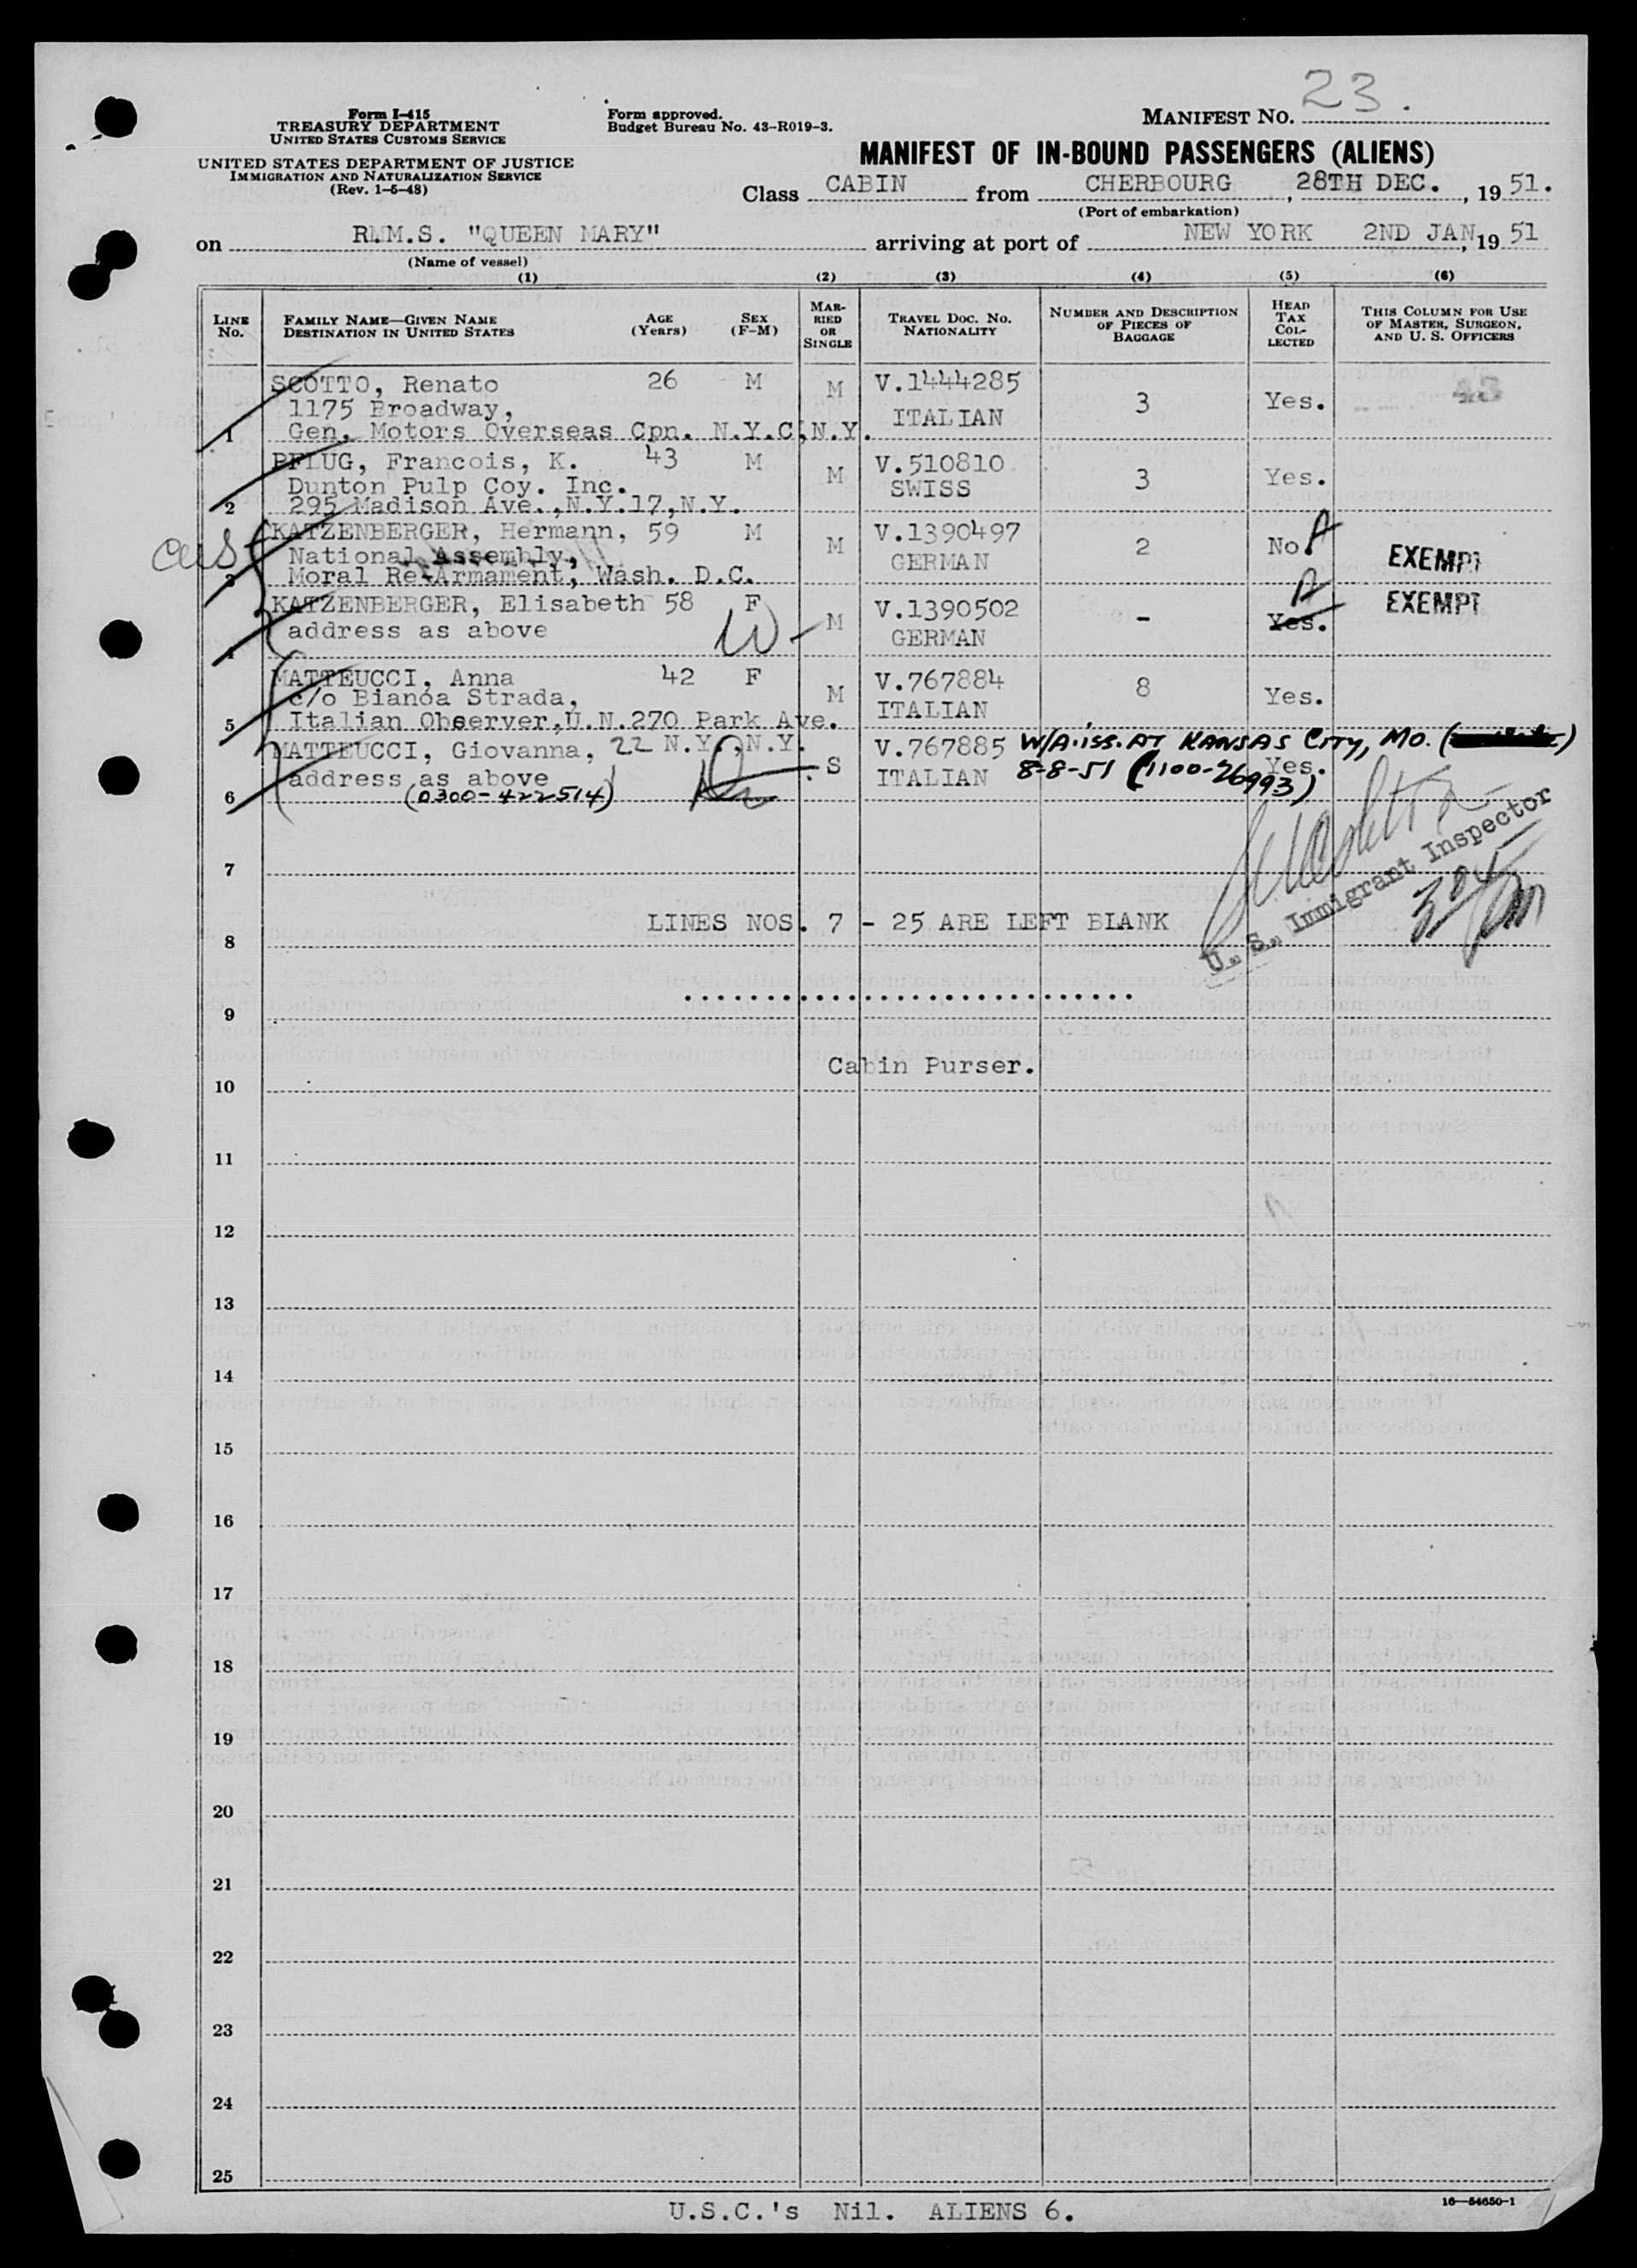 23.
Form I-415
TREASURY DEPARTMENT
UNITED STATES CUSTOMS SERVICE
UNITED STATES DEPARTMENT OF JUSTICE
IMMIGRATION AND NATURALIZATION SERVICE
(Rev. 1-5-48)
Form approved.
Budget Bureau No. 43-R019-3.
MANIFEST NO.
MANIFEST OF IN-BOUND PASSENGERS (ALIENS)
Class CABIN from CHERBOURG, 28TH DEC., 1951.
(Port of embarkation)
on R.M.S. "QUEEN MARY" arriving at port of NEW YORK 2ND JAN, 1951
(Name of vessel)
(1) (2) (3) (4) (5) (6)
LINE NO. FAMILY NAME—GIVEN NAME DESTINATION IN UNITED STATES AGE (Years) SEX (F-M) MARRIED OR SINGLE TRAVEL DOC. NO. NATIONALITY NUMBER AND DESCRIPTION OF PIECES OF BAGGAGE HEAD TAX COLLECTED THIS COLUMN FOR USE OF MASTER, SURGEON, AND U. S. OFFICERS
SCOTTO, Renato 26 M M V.1444285
1175 Broadway, ITALIAN 3 Yes.
1 Gen. Motors Overseas Cpn. N.Y.C,N.Y.
PFLUG, Francois, K. 43 M M V.510810
Dunton Pulp Coy. Inc. SWISS 3 Yes.
2 295 Madison Ave.,N.Y.17,N.Y.
KATZENBERGER, Hermann, 59 M M V.1390497
National Assembly, GERMAN 2 No. A EXEMPT
3 Moral Re-Armament, Wash. D.C.
KATZENBERGER, Elisabeth 58 F M V.1390502 A EXEMPT
address as above W GERMAN - Yes.
4
MATTEUCCI, Anna 42 F M V.767884
c/o Bianca Strada, ITALIAN 8 Yes.
5 Italian Observer,U.N.270 Park Ave.
MATTEUCCI, Giovanna, 22 N.Y.,N.Y. S V.767885 W/A iss. AT KANSAS CITY, MO.
address as above ITALIAN 8-8-51 (1100-26993) Yes.
6 (0300-422514)
7
U. S. Immigrant Inspector
LINES NOS. 7 - 25 ARE LEFT BLANK
8
9
Cabin Purser.
10
11
12
13
14
15
16
17
18
19
20
21
22
23
24
25
U.S.C.'s Nil. ALIENS 6.
16—54650-1